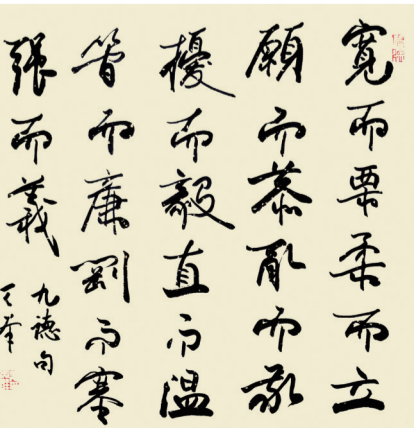 寬而栗柔而立
願而恭亂而敬
擾而毅直而溫
簡而廉剛而塞
強而義
九德句